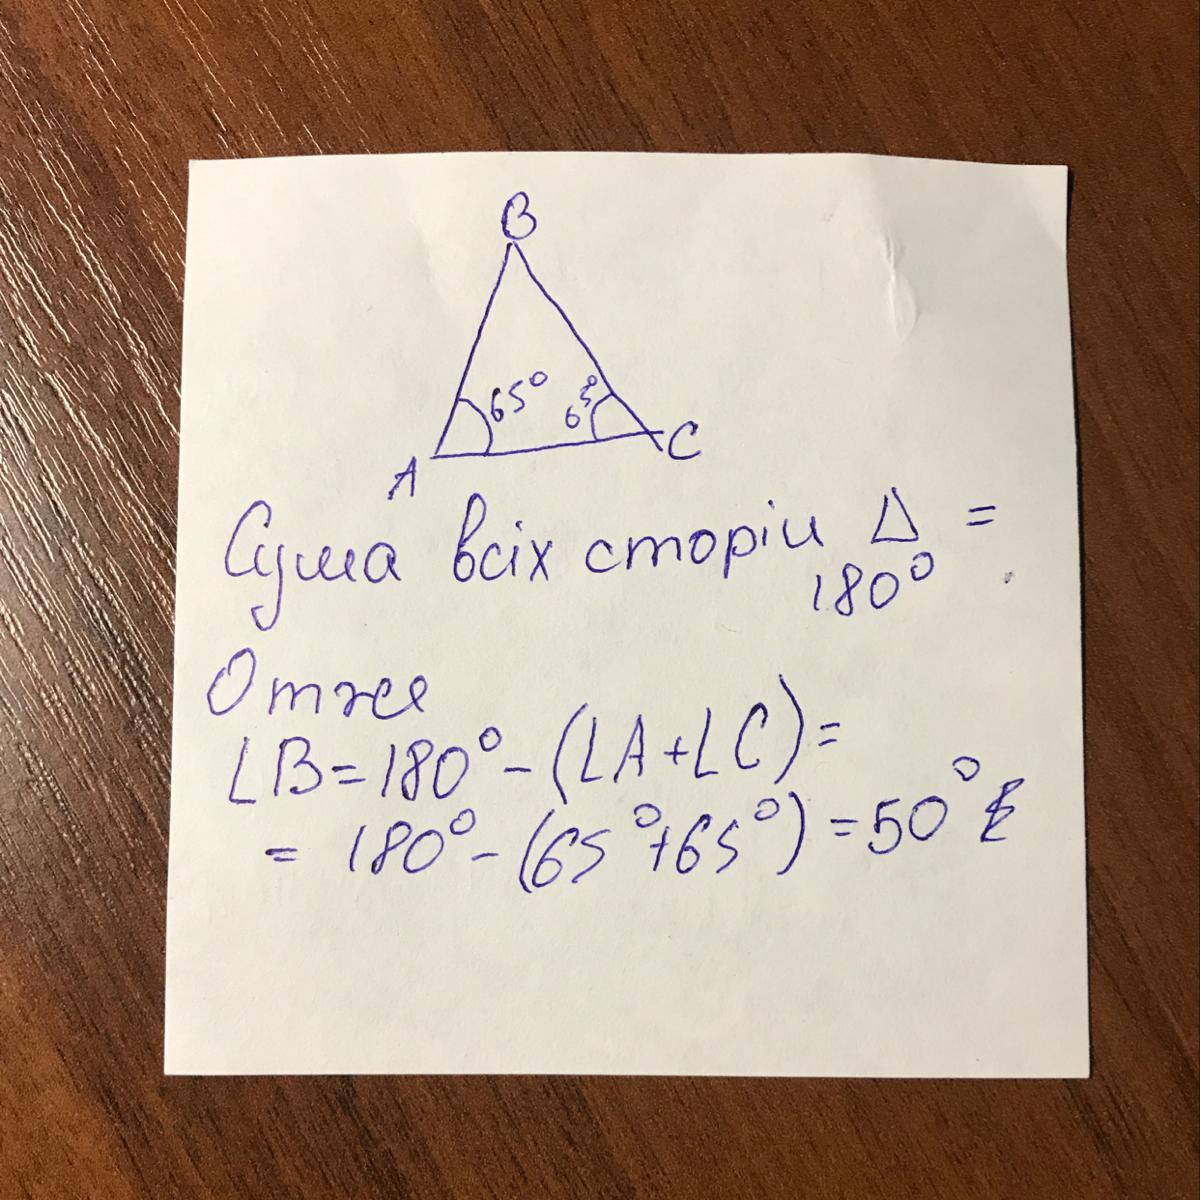 B
65°
65°
A
C
Сума всіх сторін Δ =
180°
Отже
∠B=180°-(∠A+∠C)=
= 180°-(65°+65°)=50°